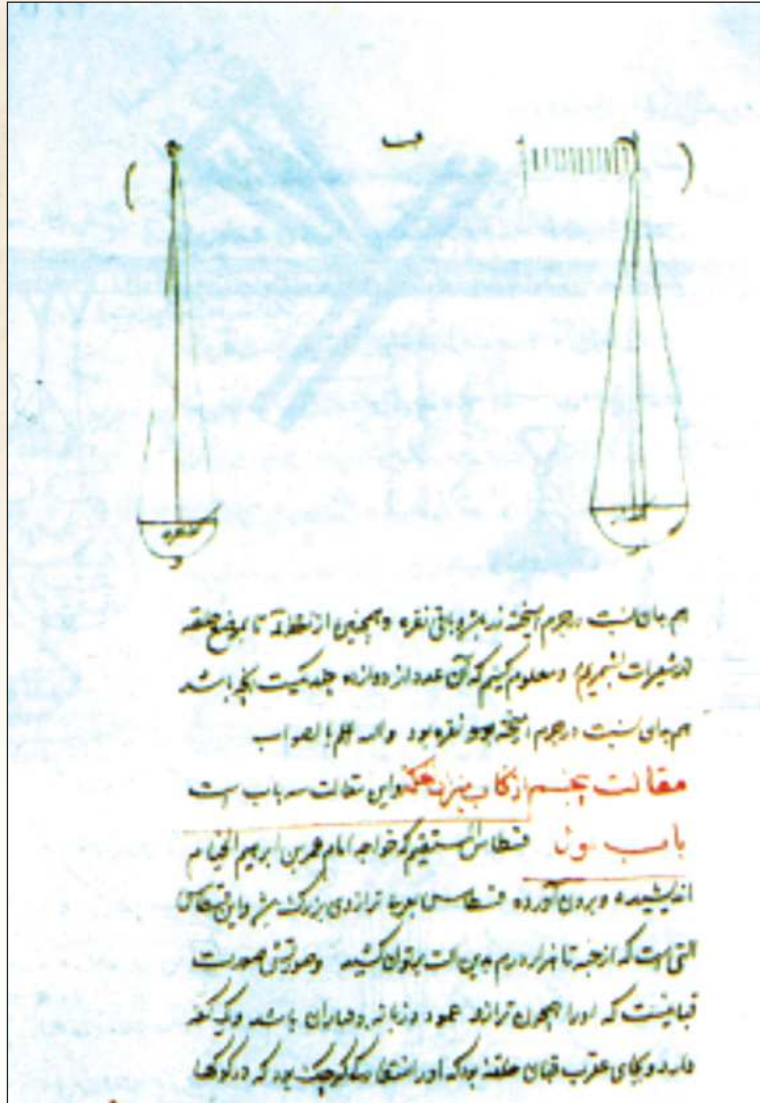 ب
نقره
هم بدان نسبت در جرم آمیخته زر بود و باقی نقره و همچنین از نقطهٔ تا موضع حلقه
معلوم کنیم که آن عدد از دوازده چند یکیست آنچه باشد
هم بدان نسبت در جرم آمیخته نقره بود والله اعلم بالصواب
مقالت پنجم از کتاب میزان حکمه و این مقالت سه باب ست
باب اول قسطاس المستقیم که خواجه امام عمر بن ابرهیم الخیام
اندیشیده و برون آورده قسطاس بود ترازوی بزرگ و این قسطاس
التی است که از حبه تا هزار درم بدین الت بتوان کشید و صورتش صورت
قبانیست که او را همچون ترازو عمود و زبانه و عیاران باشد و یک کفه
دارد و بجای عقرب قبان حلقهٔ بود که او را کوچک بود که در